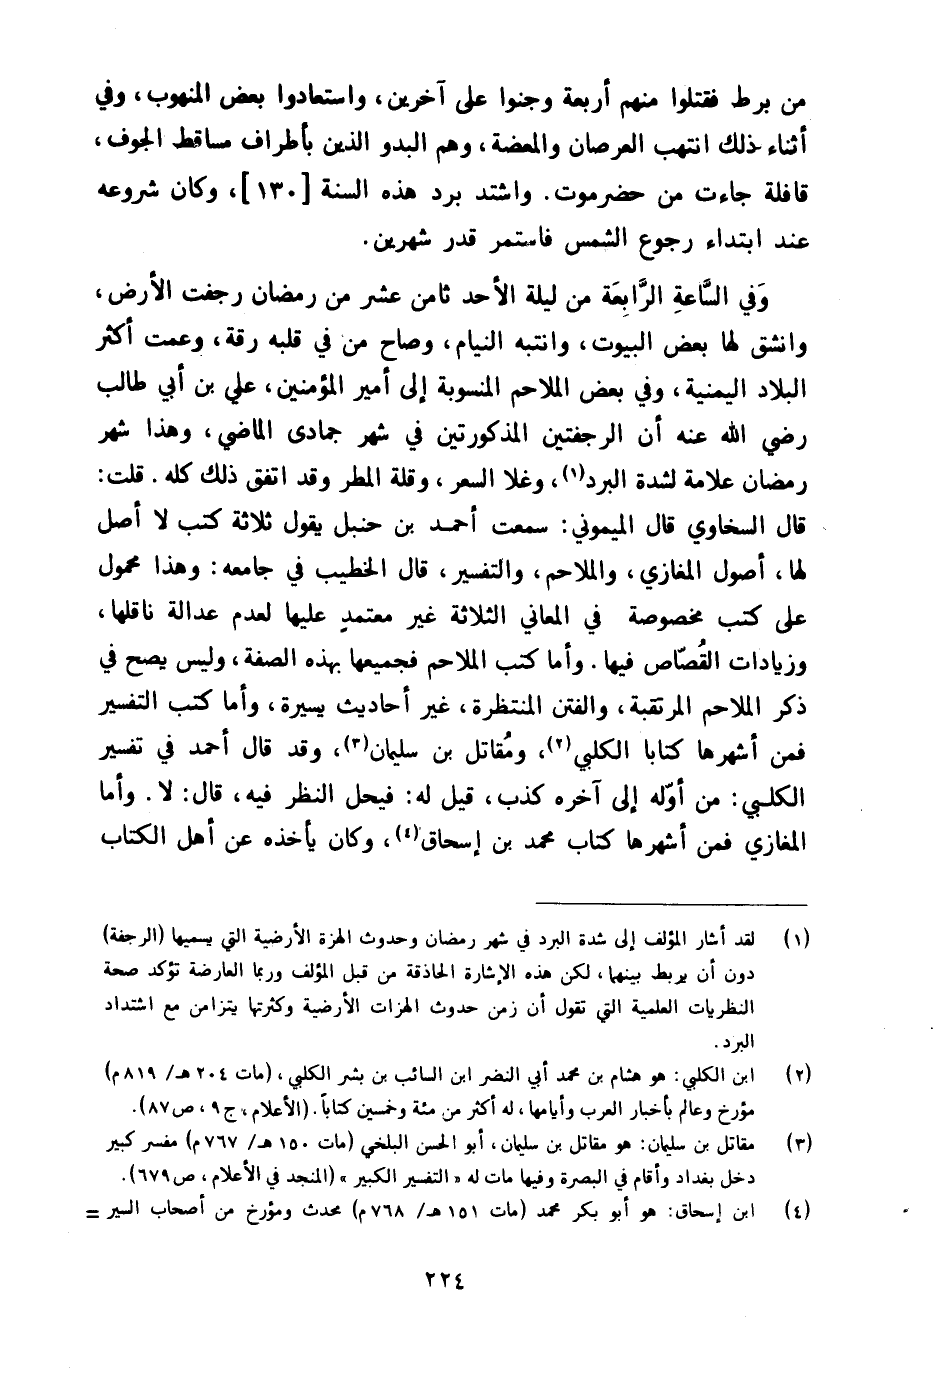 من برط فقتلوا منهم أربعة وجنوا على آخرين، واستعادوا بعض المنهوب، وفي
أثناء ذلك انتهب العرصان والمعضة، وهم البدو الذين بأطراف مساقط الجوف،
قافلة جاءت من حضرموت. واشتد برد هذه السنة [١٣٠]، وكان شروعه
عند ابتداء رجوع الشمس فاستمر قدر شهرين.
وَفي السَّاعةِ الرَّابِعَة من ليلة الأحد ثامن عشر من رمضان رجفت الأرض،
وانشق لها بعض البيوت، وانتبه النيام، وصاح من في قلبه رقة، وعمت أكثر
البلاد اليمنية، وفي بعض الملاحم المنسوبة إلى أمير المؤمنين، علي بن أبي طالب
رضي الله عنه أن الرجفتين المذكورتين في شهر جمادى الماضي، وهذا شهر
رمضان علامة لشدة البرد(١)، وغلا السعر، وقلة المطر وقد اتفق ذلك كله. قلت:
قال السخاوي قال الميموني: سمعت أحمد بن حنبل يقول ثلاثة كتب لا أصل
لها، أصول المغازي، والملاحم، والتفسير، قال الخطيب في جامعه: وهذا محمول
على كتب مخصوصة في المعاني الثلاثة غير معتمدٍ عليها لعدم عدالة ناقلها،
وزيادات القُصّاص فيها. وأما كتب الملاحم فجميعها بهذه الصفة، وليس يصح في
ذكر الملاحم المرتقبة، والفتن المنتظرة، غير أحاديث يسيرة، وأما كتب التفسير
فمن أشهرها كتابا الكلبي(٢)، ومُقاتل بن سليمان(٣)، وقد قال أحمد في تفسير
الكلبي: من أوّله إلى آخره كذب، قيل له: فيحل النظر فيه، قال: لا. وأما
المغازي فمن أشهرها كتاب محمد بن إسحاق(٤)، وكان يأخذه عن أهل الكتاب
(١) لقد أشار المؤلف إلى شدة البرد في شهر رمضان وحدوث الهزة الأرضية التي يسميها (الرجفة)
دون أن يربط بينهما، لكن هذه الإشارة الحاذقة من قبل المؤلف وربما العارضة تؤكد صحة
النظريات العلمية التي تقول أن زمن حدوث الهزات الأرضية وكثرتها يتزامن مع اشتداد
البرد.
(٢) ابن الكلبي: هو هشام بن محمد أبي النضر ابن السائب بن بشر الكلبي، (مات ٢٠٤ هـ/ ٨١٩ م)
مؤرخ وعالم بأخبار العرب وأيامها، له أكثر من مئة وخمسين كتاباً. (الأعلام، ج ٩، ص ٨٧).
(٣) مقاتل بن سليمان: هو مقاتل بن سليمان، أبو الحسن البلخي (مات ١٥٠ هـ/ ٧٦٧ م) مفسر كبير
دخل بغداد وأقام في البصرة وفيها مات له «التفسير الكبير» (المنجد في الأعلام، ص ٦٧٩).
(٤) ابن إسحاق: هو أبو بكر محمد (مات ١٥١ هـ/ ٧٦٨ م) محدث ومؤرخ من أصحاب السير =
٢٢٤